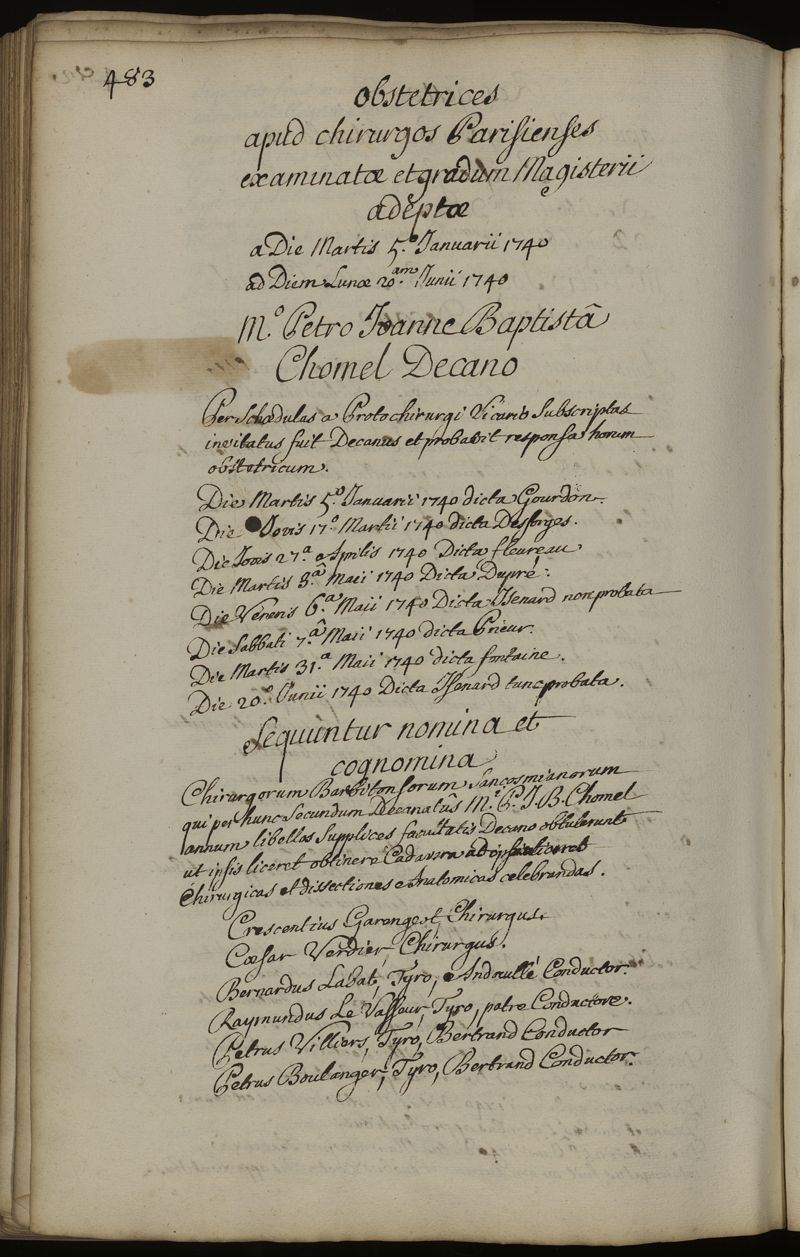 483
Obstetrices
apud chirurgos Parisienses
examinatæ et gradum Magisterii
adeptæ
a Die Martis 5.º Januarii 1740
ad Diem Lunæ 20.am Junii 1740
M.º Petro Joanne Baptistâ
Chomel Decano
Per Schædulas a Protochirurgi Vicario Subscriptas
invitatus fuit Decanus et probavit responsa harum
obstetricum.
Die Martis 5.º Januarii 1740 dicta Gourdon.
Die Jovis 17.º Martii 1740 dicta Desforges.
Die Jovis 27.a Aprilis 1740 Dicta fleureau
Die Martis 3.â Maii 1740 Dicta Dupré.
Die Veneris 6.a Maii 1740 Dicta Isenard non probata
Die Sabbati 7.â Maii 1740 dicta Prieur.
Die Martis 31.a Maii 1740 dicta fontaine.
Die 20.a Junii 1740 Dicta Isenard tunc probata.
Sequuntur nomina et
cognomina
Chirurgorum Barbitonsorum Sancosmianorum
qui per hunc Secundum Decanatûs M.i P. J. B. Chomel
annum libellos Supplices facultatis Decano obtulerunt
ut ipsis liceret obtinere Cadavera ad
Chirurgicas et dissectiones Anatomicas celebrandas.
Crescentius Garengeot, Chirurgus.
Cæsar Verdier, Chirurgus.
Bernardus Labat, Tyro, Andouillé Conductor.
Raymundus Le Vasseur, Tyro, patre Conductore.
Petrus Villiers, Tyro, Bertrand Conductor
Petrus Boulanger, Tyro, Bertrand Conductor.